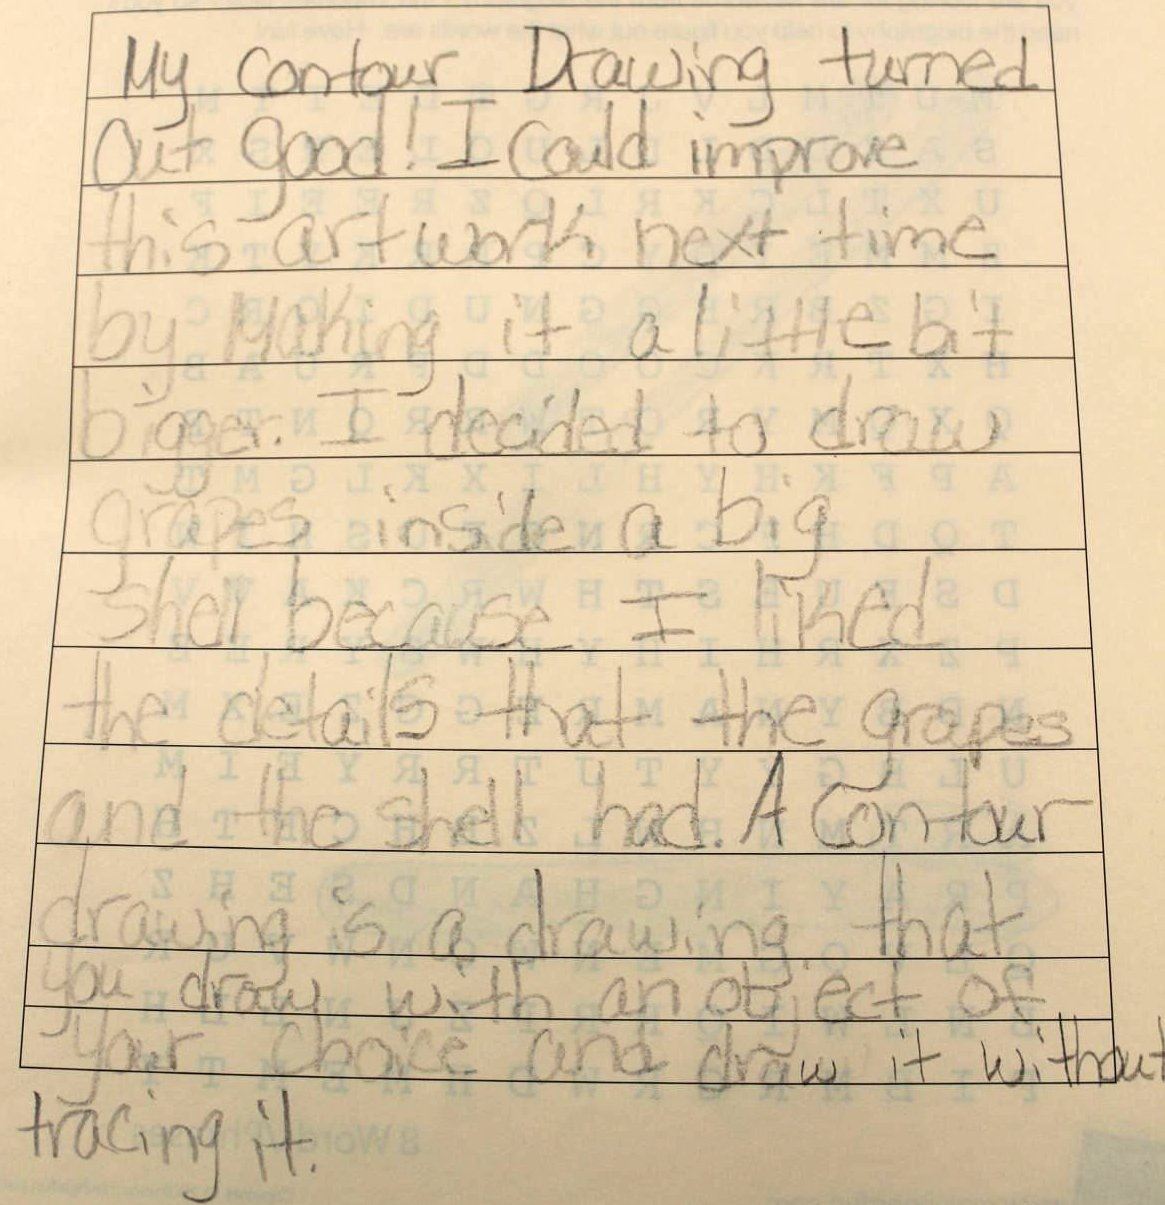 My Contour Drawing turned
out good! I Could improve
this artwork next time
by Making it a little bit
biger. I decided to draw
grapes inside a big
shell because I liked
the details that the grapes
and the shell had. A Contour
drawing is a drawing that
you draw with an object of
your choice and draw it without
tracing it.